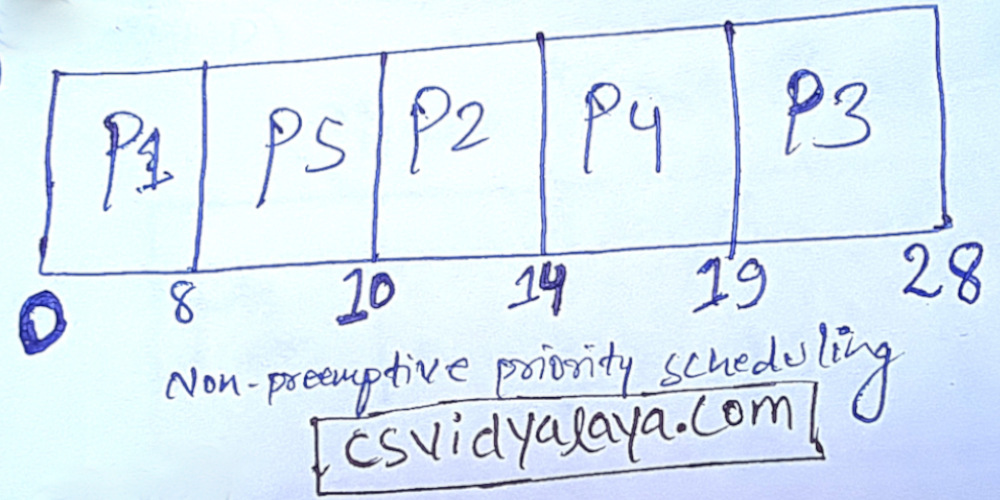 P1 P5 P2 P4 P3
0 8 10 14 19 28
Non-preemptive priority scheduling
csvidyalaya.com